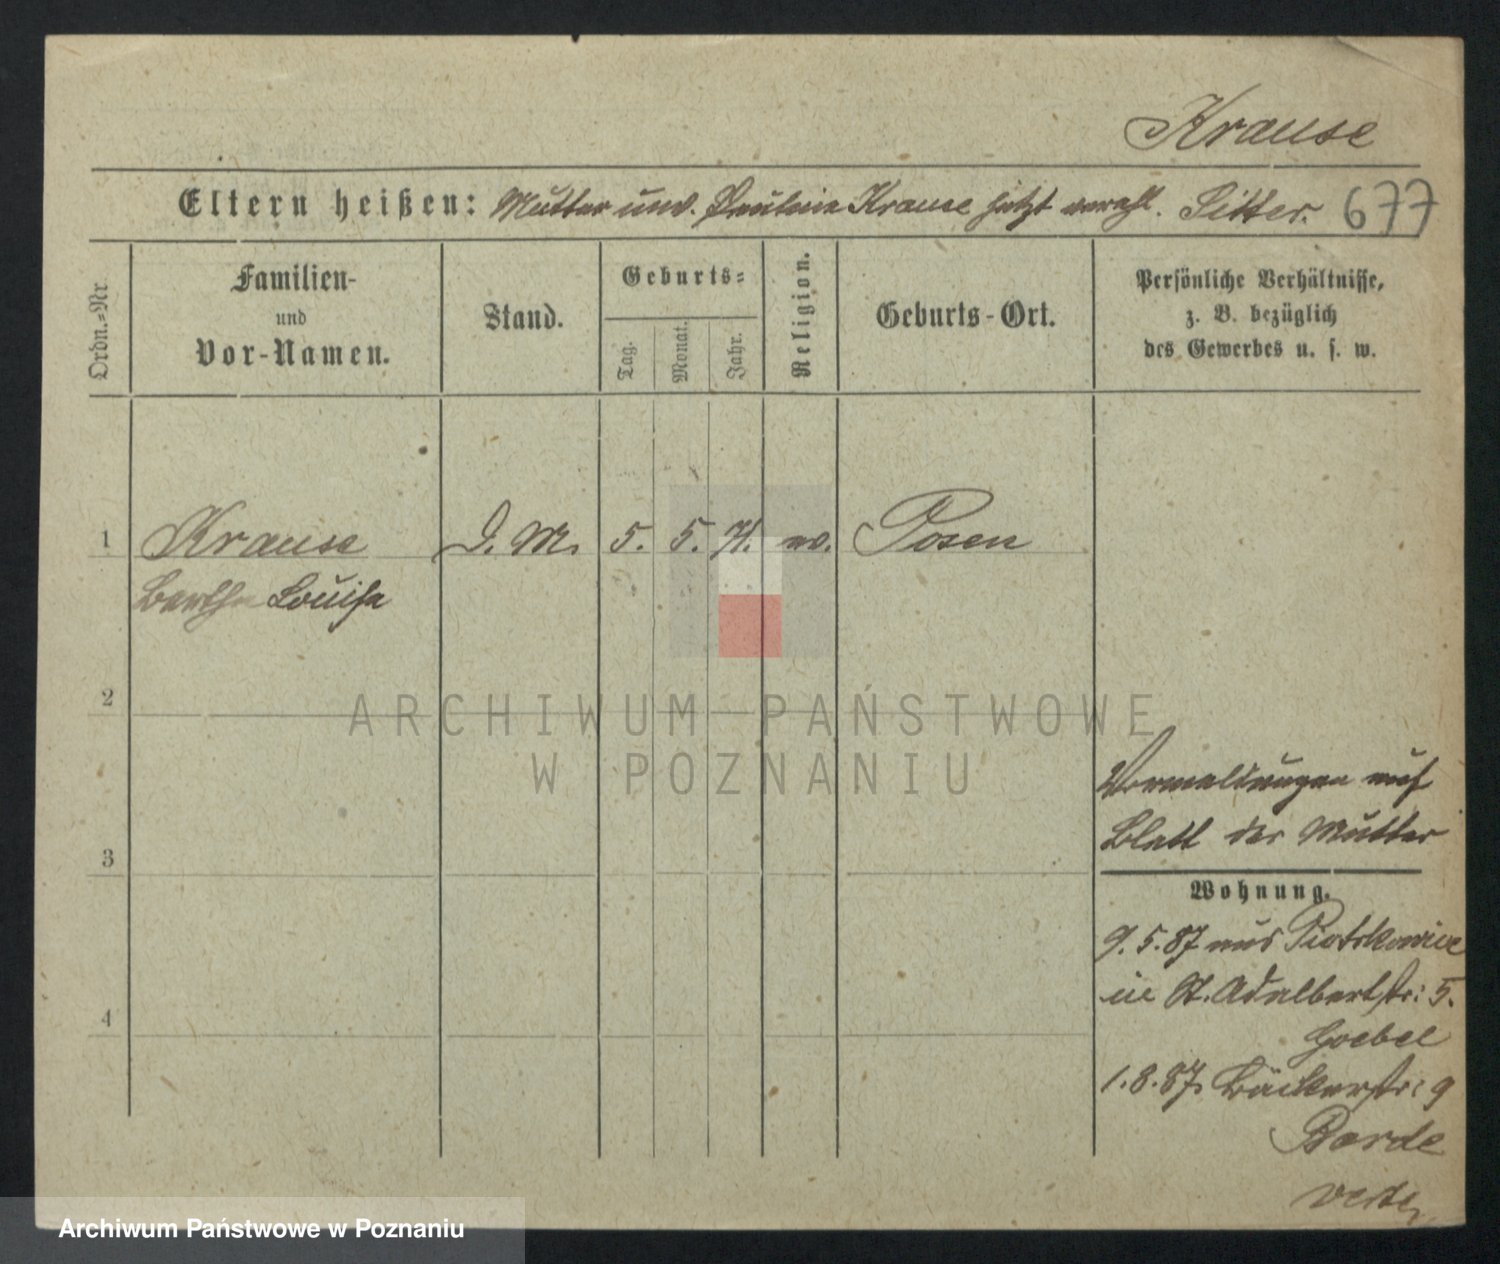 Krause
Eltern heißen: Mutter unv. Pauline Krause jetzt verehl. Sitter. 677
Ordn.=Nr.
Familien-
und
Vor-Namen.
Stand.
Geburts=
Tag.
Monat.
Jahr.
Religion.
Geburts-Ort.
Persönliche Verhältnisse,
z. B. bezüglich
des Gewerbes u. s. w.
1 Krause D. M. 5. 5. 71. ev. Posen
Bertha Louise
2
3
4
Vormeldungen auf
Blatt der Mutter
Wohnung.
9.5.87 aus Piotrkowice
in St. Adalbertstr: 5.
Goebel
1.8.87. Bäckerstr: 9
Barde
ARCHIWUM PAŃSTWOWE
W POZNANIU
Archiwum Państwowe w Poznaniu